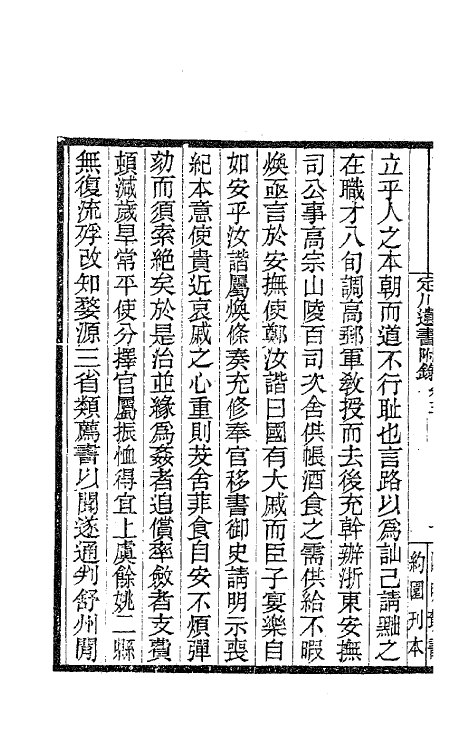 立乎人之本朝而道不行耻也言路以爲訕己請黜之
在職才八旬調高郵軍敎授而去後充幹辦浙東安撫
司公事高宗山陵百司次舍供帳酒食之需供給不暇
煥亟言於安撫使鄭汝諧曰國有大戚而臣子宴樂自
如安乎汝諧屬煥條奏充修奉官移書御史請明示喪
紀本意使貴近哀戚之心重則芨舍菲食自安不煩彈
劾而須索絕矣於是治並緣爲姦者追償率斂者支費
頓減歲旱常平使分擇官屬振恤得宜上虞餘姚二縣
無復流殍改知婺源三省類薦書以聞遂通判舒州閒
定川遺書附錄
一
約園刊本